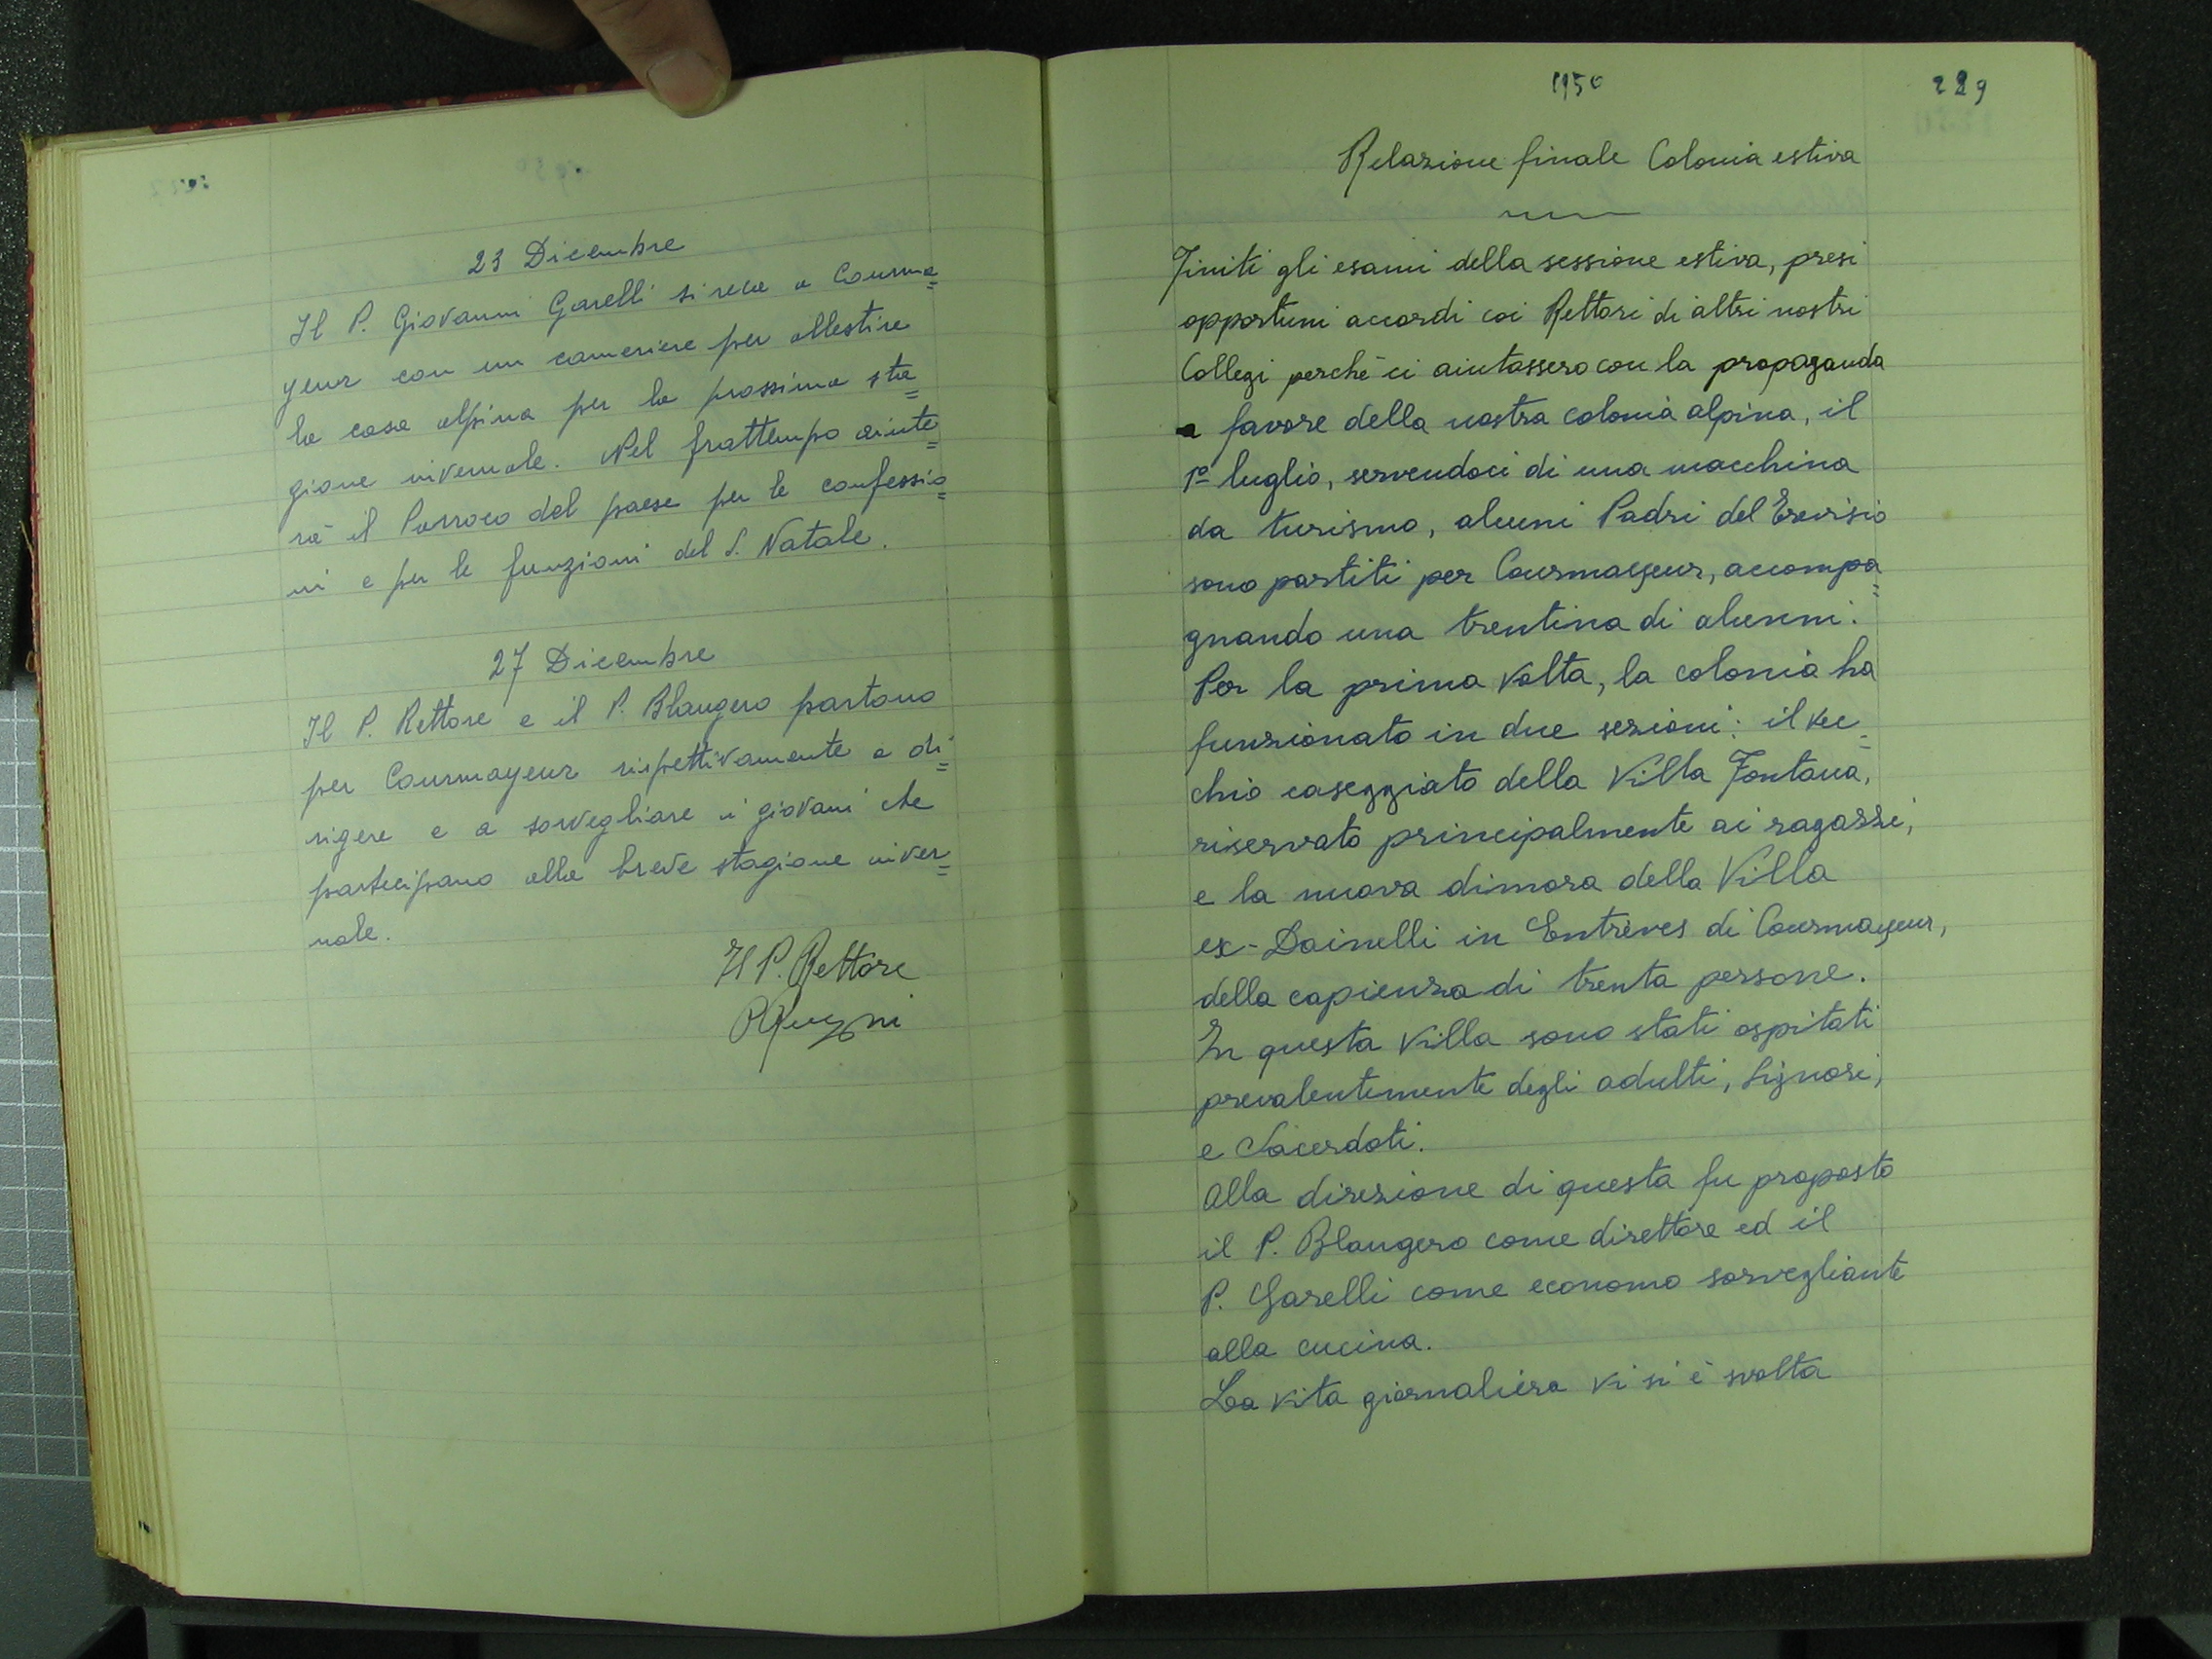 23 Dicembre
Il P. Giovanni Garelli si reca a Courma=
yeur con un cameriere per allestire
la casa alpina per la prossima sta=
gione invernale. Nel frattempo aiute=
rà il Parroco del paese per le confessio=
ni e per le funzioni del S. Natale.
27 Dicembre
Il P. Rettore e il P. Blangero partono
per Courmayeur rispettivamente a di=
rigere e a sorvegliare i giovani che
partecipano alla breve stagione inver=
nale.
Il P. Rettore
1950
229
Relazione finale Colonia estiva
Finiti gli esami della sessione estiva, presi
opportuni accordi coi Rettori di altri nostri
Collegi perchè ci aiutassero con la propaganda
a favore della nostra colonia alpina, il
1º luglio, servendoci di una macchina
da turismo, alcuni Padri del Trevisio
sono partiti per Courmayeur, accompa=
gnando una trentina di alunni.
Per la prima volta, la colonia ha
funzionato in due sezioni: il vec=
chio caseggiato della Villa Fontana,
riservato principalmente ai ragazzi,
e la nuova dimora della Villa
ex-Dainelli in Entrèves di Courmayeur,
della capienza di trenta persone.
In questa Villa sono stati ospitati
prevalentemente degli adulti, Signori,
e Sacerdoti.
Alla direzione di questa fu proposto
il P. Blangero come direttore ed il
P. Garelli come economo sorvegliante
alla cucina.
La vita giornaliera vi si è svolta